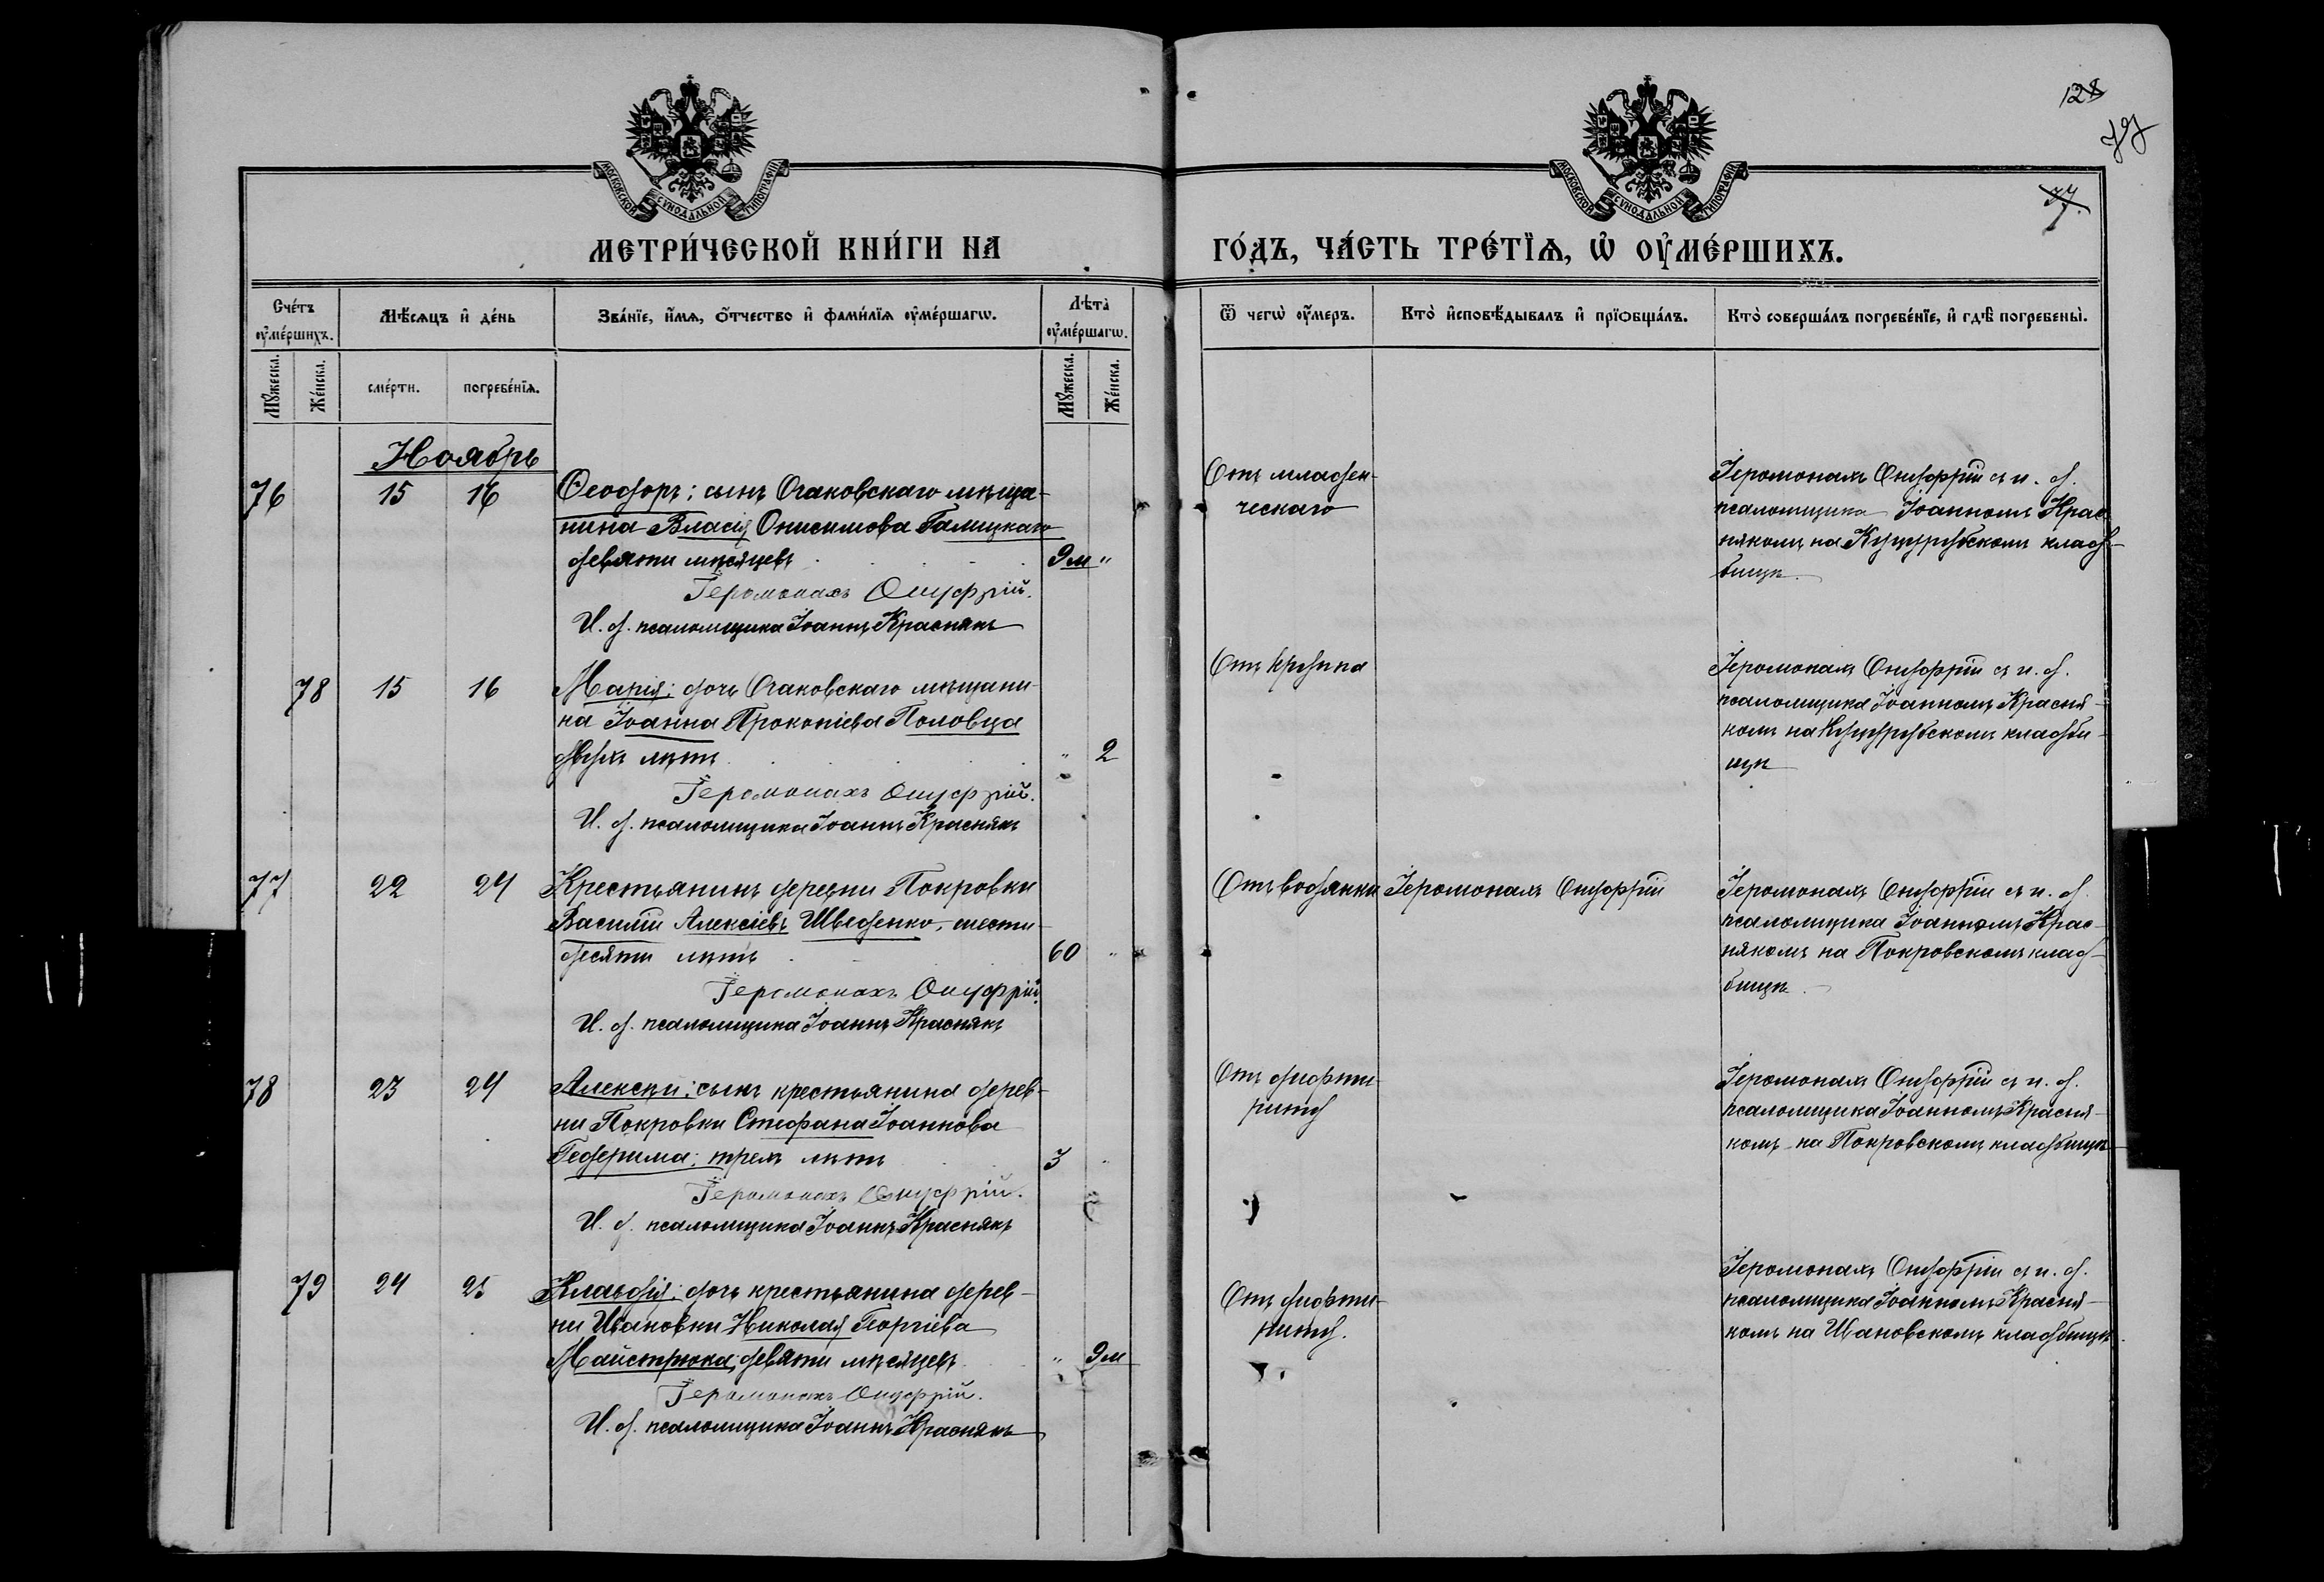 128
79
77.
МОСКОВСКОЙ СУНОДАЛЬНОЙ ТИПОГРАФІИ
МОСКОВСКОЙ СУНОДАЛЬНОЙ ТИПОГРАФІИ
МЕТРИ́ЧЕСКОЙ КНИ́ГИ НА
ГО́ДЪ, ЧА́СТЬ ТРЕ́ТЇѦ, Ѡ҆ ОУ҆МЕ́РШИХЪ.
Сче́тъ оу҆ме́ршихъ.
Мѣ́сяцъ и҆ де́нь
Зва́нїе, и҆́мѧ, ѻ҆́тчество и҆ фами́лїѧ оу҆ме́ршагѡ.
Лѣта̀ оу҆ме́ршагѡ.
Ѿ чегѡ̀ оу҆́меръ.
Кто̀ и҆сповѣ́дывалъ и҆ прїѻбща́лъ.
Кто̀ соверша́лъ погребе́нїе, и҆ гдѣ̀ погребены̀.
Мꙋ́жеска.
Же́нска.
сме́рти.
погребе́нїѧ.
Мꙋ́жеска.
Же́нска.
Ноябрь
76 15 16 Ѳеодоръ; сынъ Очаковскаго мѣща-
нина Власія Онисимова Галицкаго
девяти мѣсяцевъ 9м "
Іеромонахъ Онуфрій.
И. д. псаломщика Іоаннъ Краснякъ
Отъ младен-
ческаго
Іеромонахъ Онуфрій съ и. д.
псаломщика Іоанномъ Крас
някомъ на Куцурубскомъ клад-
бищѣ.
78 15 16 Марія; дочь Очаковскаго мѣщани-
на Іоанна Прокопіева Половца
двухъ лѣтъ " 2
Іеромонахъ Онуфрій.
И. д. псаломщика Іоаннъ Краснякъ
Отъ крупа
Іеромонахъ Онуфрій съ и. д.
псаломщика Іоанномъ Красня-
комъ на Куцурубскомъ кладби-
щѣ
77 22 24 Крестьянинъ деревни Покровки
Василій Алексіевъ Шведенко, шести-
десяти лѣтъ 60 "
Іеромонахъ Онуфрій.
И. д. псаломщика Іоаннъ Краснякъ
Отъ водянки Іеромонахъ Онуфрій
Іеромонахъ Онуфрій съ и. д.
псаломщика Іоанномъ Крас-
някомъ на Покровскомъ клад-
бищѣ.
78 23 24 Алексѣй; сынъ крестьянина дерев-
ни Покровки Стефана Іоаннова
Гедерима; трехъ лѣтъ 3 "
Іеромонахъ Онуфрій.
И. д. псаломщика Іоаннъ Краснякъ
Отъ дифте-
рита
Іеромонахъ Онуфрій съ и. д.
псаломщика Іоанномъ Красня-
комъ на Покровскомъ кладбищѣ
79 24 25 Клавдія; дочь крестьянина дерев-
ни Ивановки Николая Георгіева
Майстрюка; девяти мѣсяцевъ " 9м
Іеромонахъ Онуфрій.
И. д. псаломщика Іоаннъ Краснякъ
Отъ дифте-
рита.
Іеромонахъ Онуфрій съ и. д.
псаломщика Іоанномъ Красня-
комъ на Ивановскомъ кладбищѣ.